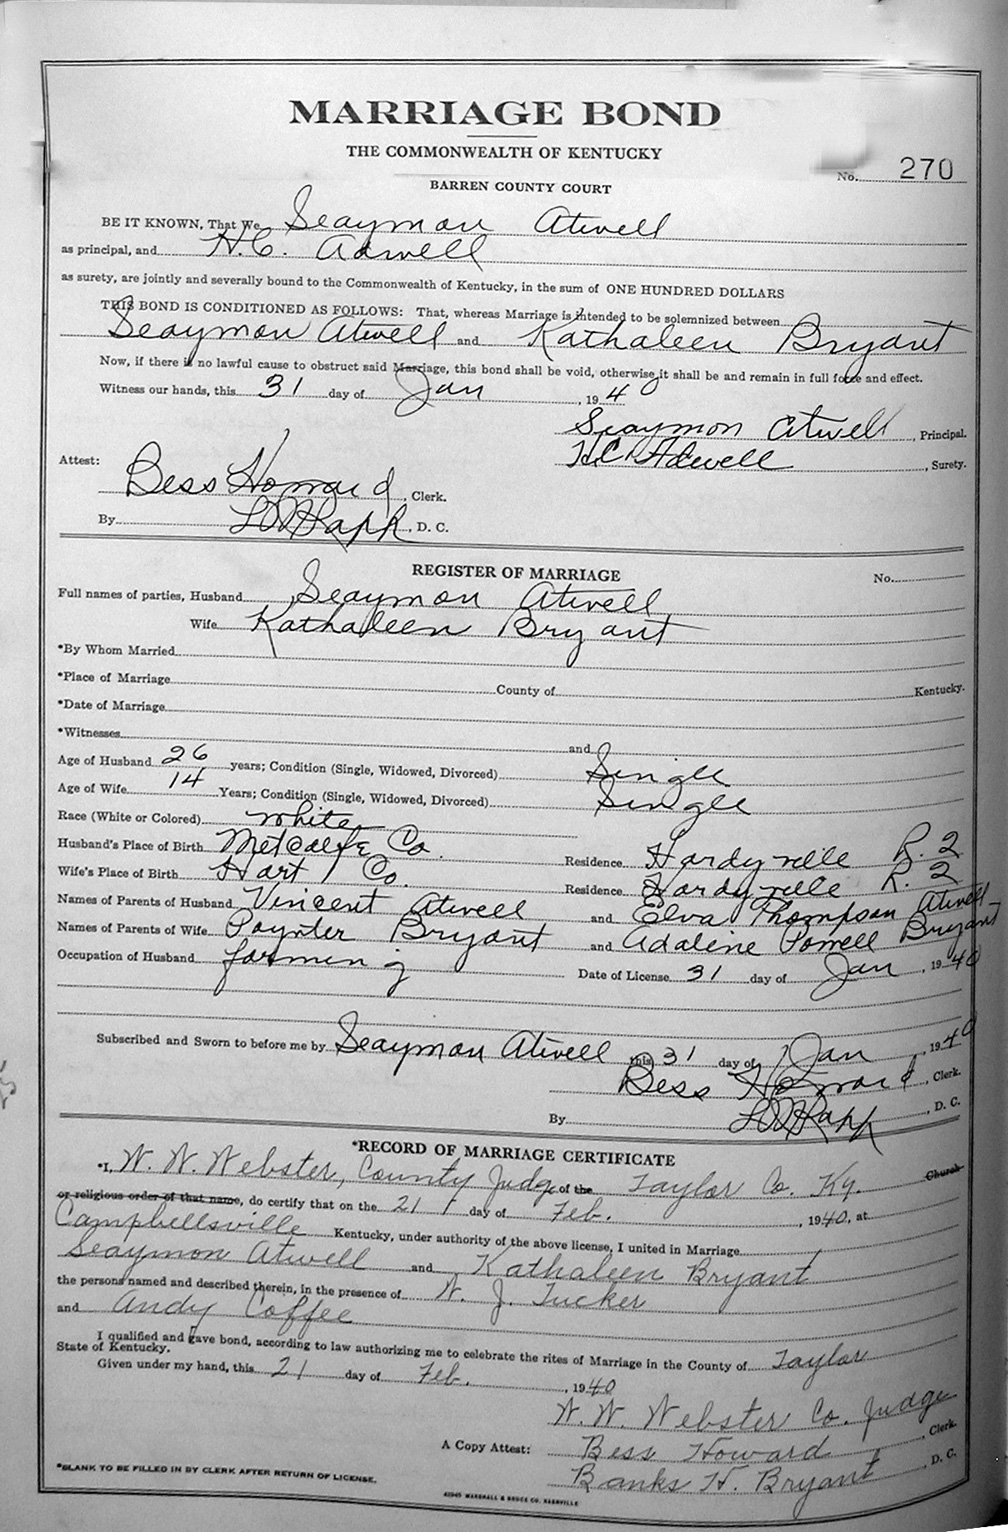 MARRIAGE BOND
THE COMMONWEALTH OF KENTUCKY
No. 270
BARREN COUNTY COURT
BE IT KNOWN, That We Seaymon Atwell
as principal, and H.C. Adwell
as surety, are jointly and severally bound to the Commonwealth of Kentucky, in the sum of ONE HUNDRED DOLLARS
THIS BOND IS CONDITIONED AS FOLLOWS: That, whereas Marriage is intended to be solemnized between
Seaymon Atwell and Kathaleen Bryant
Now, if there is no lawful cause to obstruct said Marriage, this bond shall be void, otherwise it shall be and remain in full force and effect.
Witness our hands, this 31 day of Jan, 1940
Seaymon Atwell, Principal.
H.C. Adwell, Surety.
Attest:
Bess Howard, Clerk.
By, D. C.
REGISTER OF MARRIAGE No.
Full names of parties, Husband Seaymon Atwell
Wife Kathaleen Bryant
*By Whom Married
*Place of Marriage County of Kentucky.
*Date of Marriage
*Witnesses and
Age of Husband 26 years; Condition (Single, Widowed, Divorced) Single
Age of Wife 14 Years; Condition (Single, Widowed, Divorced) Single
Race (White or Colored) White
Husband's Place of Birth Metcalfe Co. Residence Hardyville R. 2
Wife's Place of Birth Hart Co. Residence Hardyville R. 2
Names of Parents of Husband Vincent Atwell and Elva Thompson Atwell
Names of Parents of Wife Poynter Bryant and Adaline Powell Bryant
Occupation of Husband farming Date of License 31 day of Jan, 1940
Subscribed and Sworn to before me by Seaymon Atwell this 31 day of Jan, 1940
Bess Howard, Clerk.
By, D. C.
*RECORD OF MARRIAGE CERTIFICATE
*I, W. W. Webster, County Judge of the Taylor Co. Ky. Church
or religious order of that name, do certify that on the 21 day of Feb., 1940, at
Campbellsville Kentucky, under authority of the above license, I united in Marriage
Seaymon Atwell and Kathaleen Bryant
the persons named and described therein, in the presence of W. J. Tucker
and Andy Coffee
I qualified and gave bond, according to law authorizing me to celebrate the rites of Marriage in the County of Taylor
State of Kentucky.
Given under my hand, this 21 day of Feb., 1940
W. W. Webster Co. Judge
A Copy Attest: Bess Howard, Clerk.
Banks H. Bryant, D. C.
*BLANK TO BE FILLED IN BY CLERK AFTER RETURN OF LICENSE.
MARSHALL & BRUCE CO. NASHVILLE